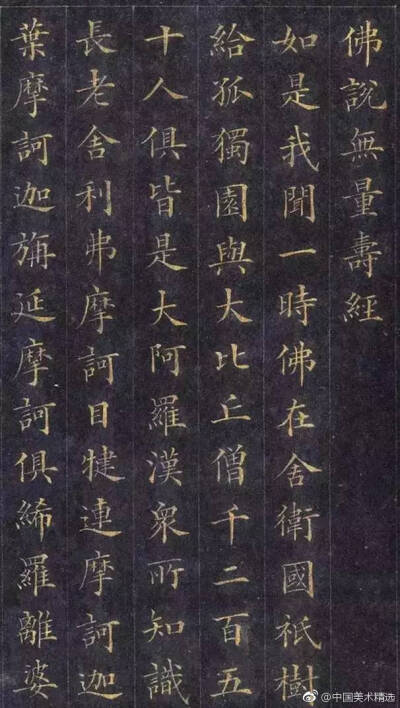 佛說無量壽經
如是我聞一時佛在舍衛國祇樹
給孤獨園與大比丘僧千二百五
十人俱皆是大阿羅漢眾所知識
長老舍利弗摩訶目犍連摩訶迦
葉摩訶迦旃延摩訶俱絺羅離婆
@中国美术精选